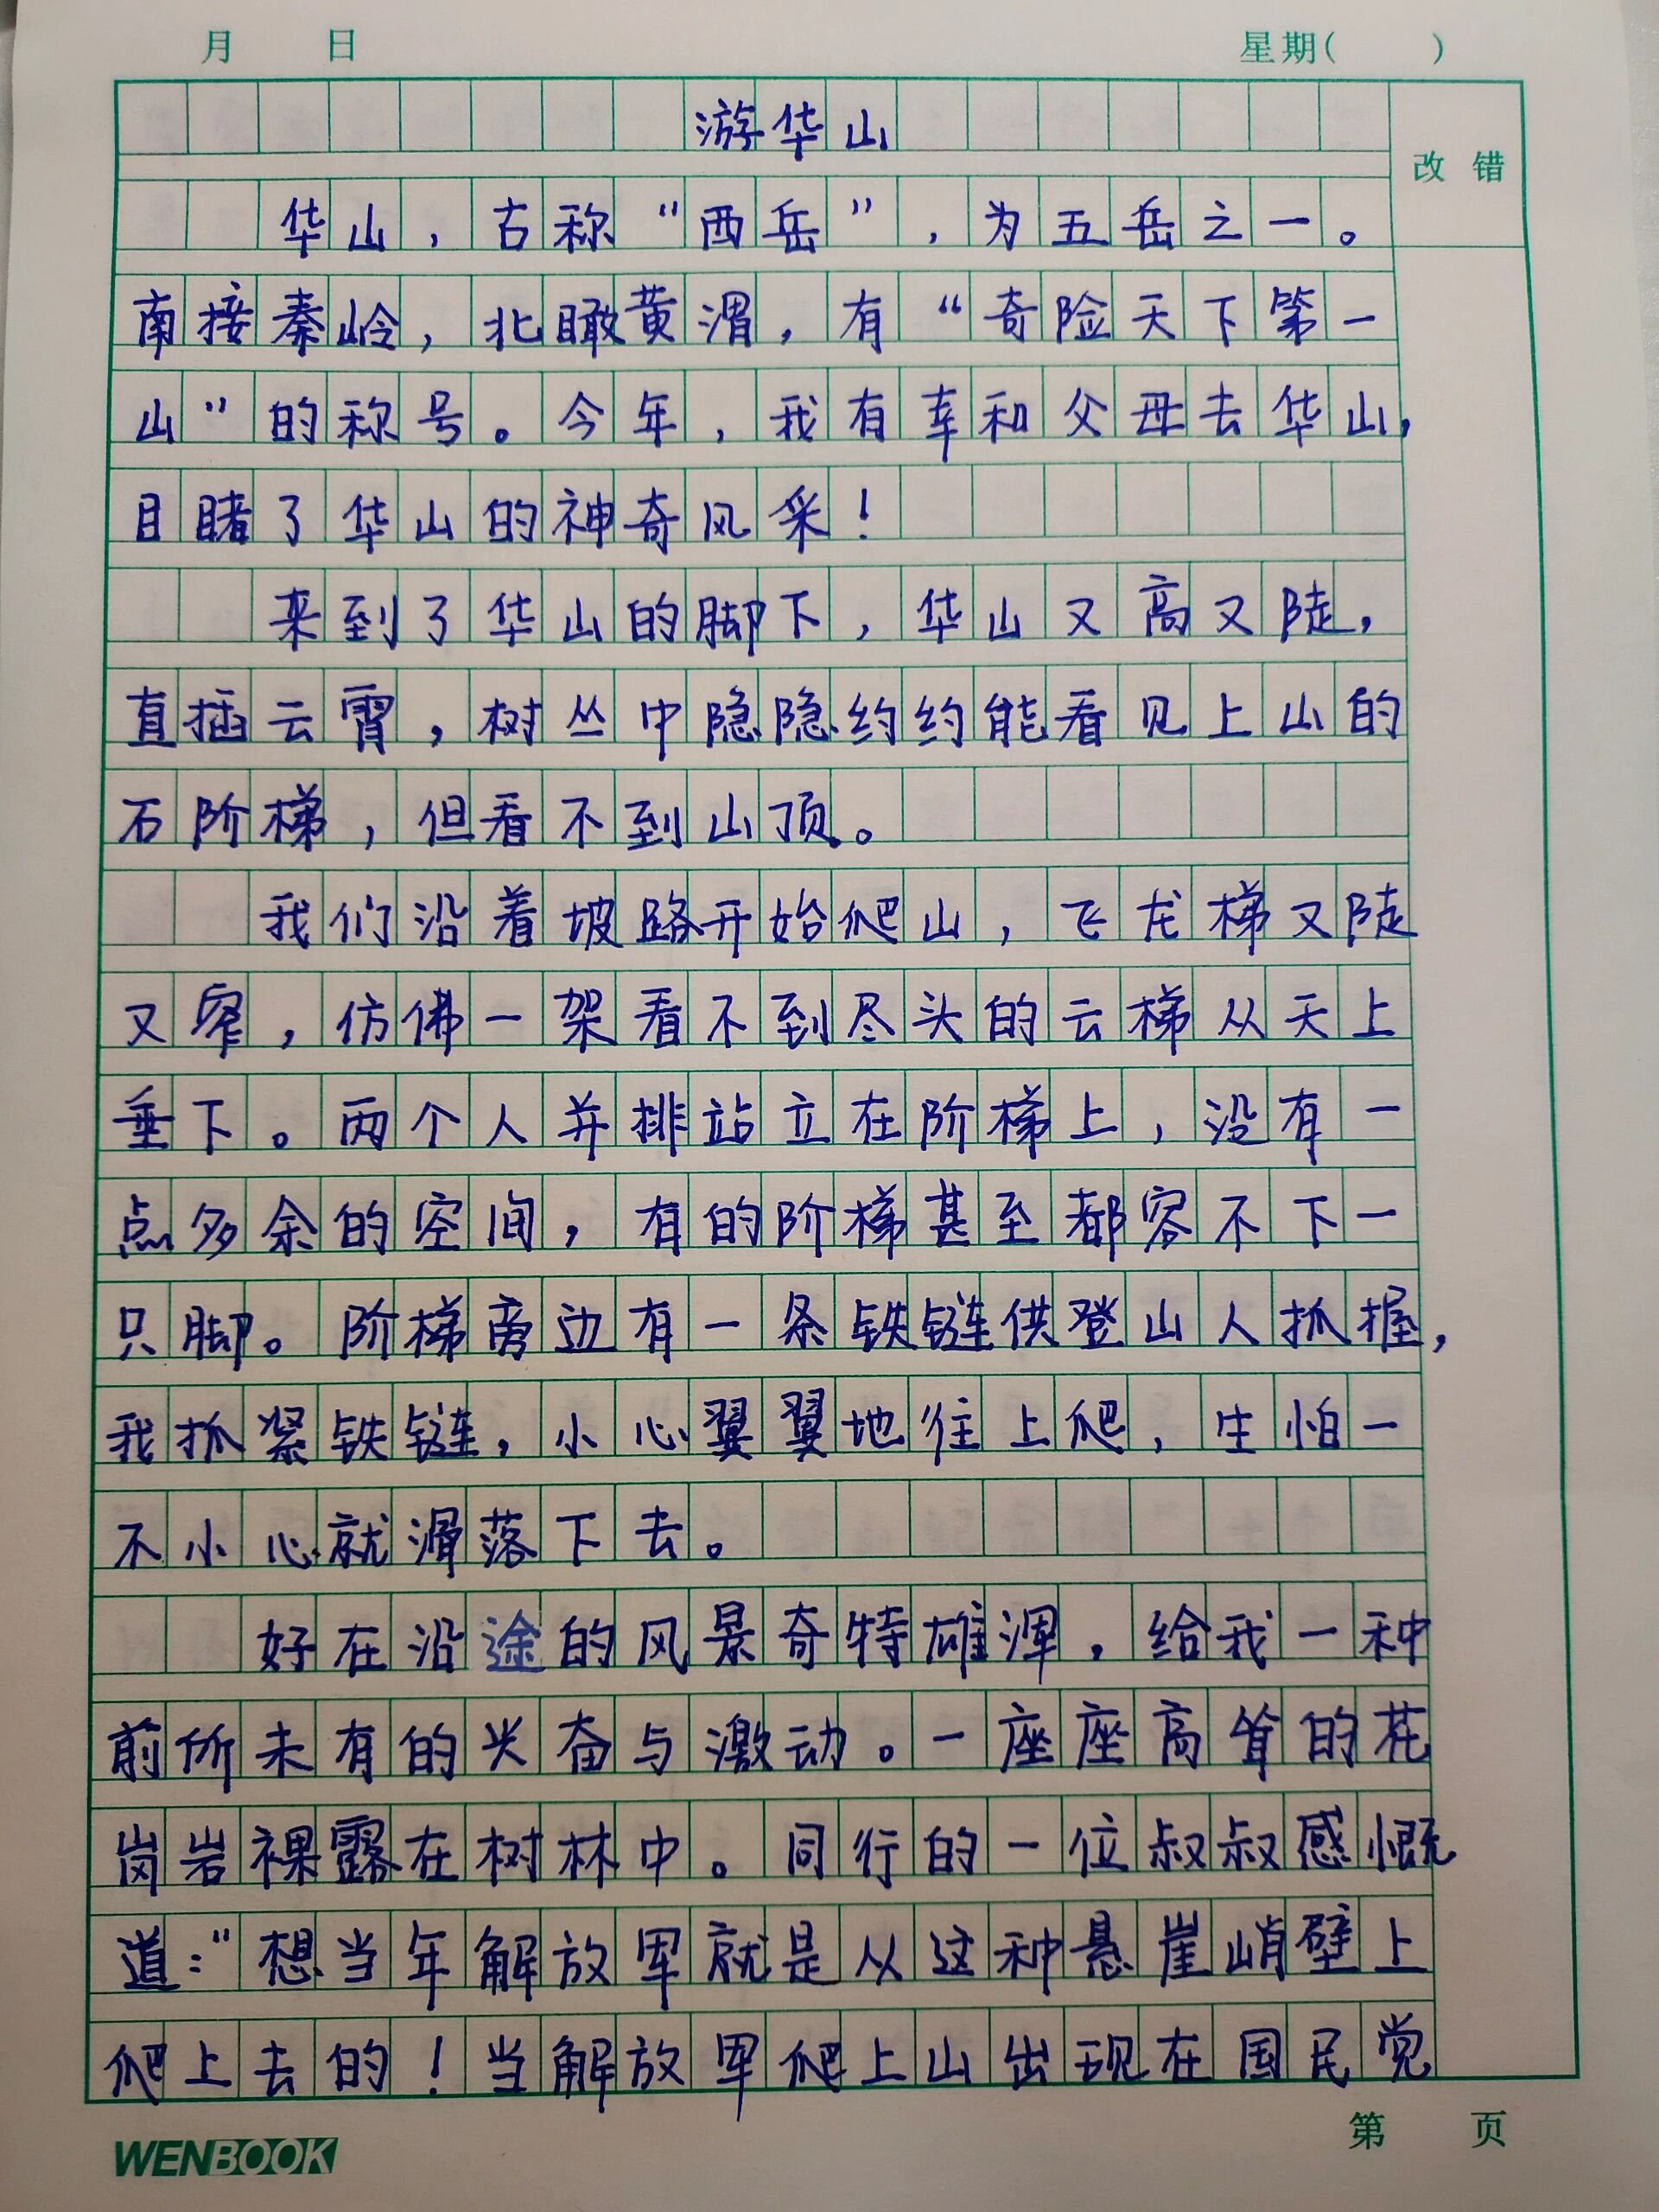 月 日 星期( )
游华山
改错
华山，古称“西岳”，为五岳之一。
南接秦岭，北瞰黄渭，有“奇险天下第一
山”的称号。今年，我有幸和父母去华山，
目睹了华山的神奇风采！
来到了华山的脚下，华山又高又陡，
直插云霄，树丛中隐隐约约能看见上山的
石阶梯，但看不到山顶。
我们沿着坡路开始爬山，飞龙梯又陡
又窄，仿佛一架看不到尽头的云梯从天上
垂下。两个人并排站立在阶梯上，没有一
点多余的空间，有的阶梯甚至都容不下一
只脚。阶梯旁边有一条铁链供登山人抓握，
我抓紧铁链，小心翼翼地往上爬，生怕一
不小心就滑落下去。
好在沿途的风景奇特雄浑，给我一种
前所未有的兴奋与激动。一座座高耸的花
岗岩裸露在树林中。同行的一位叔叔感慨
道：“想当年解放军就是从这种悬崖峭壁上
爬上去的！当解放军爬上山出现在国民党
第 页
WENBOOK